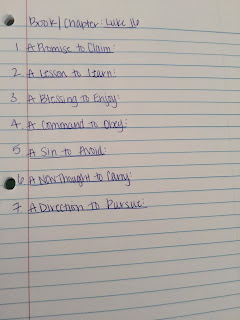 Book/Chapter: Luke 16
1. A Promise to Claim:
2. A Lesson to Learn:
3. A Blessing to Enjoy:
4. A Command to Obey:
5 A Sin to Avoid:
6 A New Thought to Carry:
7 A Direction to Pursue: